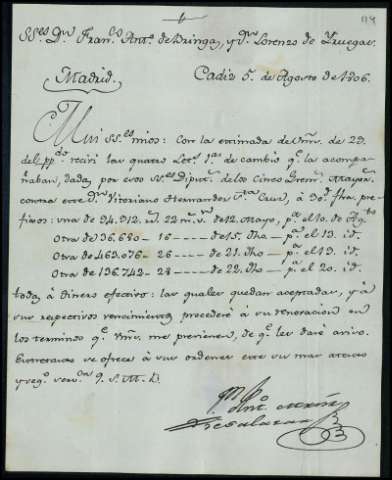 SS.es Dn Franco Anto de Dringas, y Dn Lorenzo de Yruegas.
Madrid. Cadiz 5 de Agosto de 1806.
Mui SS.es mios: Con la estimada de Vms. de 29.
del ppdo reciví las quatro Letras 1as de cambio qe la acompa-
ñaban, dadas por esos SS.es Diputs de los Cinco Grems Mayors
contra este Dn Victoriano Hernandez Sta Cruz, à 90 dfha pre-
fixos: una de 94.912 22 ms vn de 12. Mayo, pa el 10. de Agto
Otra de 36.680 - 16 - de 15. Iho - pa el 13. id.
Otra de 463.076 - 26 - de 21. Iho - pa el 19. id.
Otra de 136.742 - 28 - de 22. Iho - pa el 20. id.
todas à dinero efectivo: las quales quedan aceptadas, y à
sus respectivos vencimientos procederé à su renovacion en
los terminos qe Vms. me previenen, de qe les daré aviso.
Entretanto se ofrece à sus ordenes este su mas atento
y sego servor Q. S. M. B.
Anto